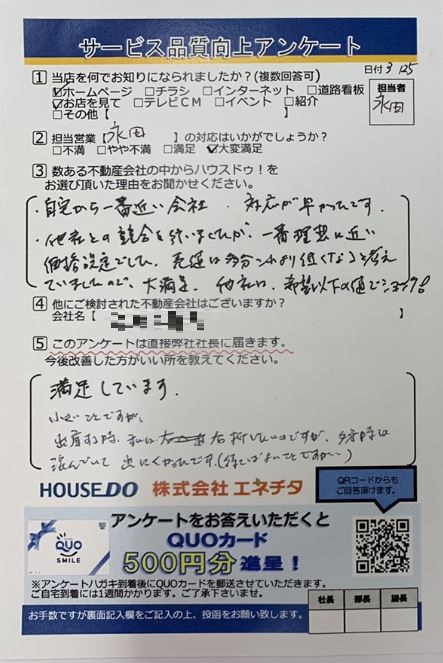 サービス品質向上アンケート
日付 3/25
担当者
永田
1 当店を何でお知りになられましたか?(複数回答可)
☑ホームページ □チラシ □インターネット □道路看板
☑お店を見て □テレビCM □イベント □紹介
□その他【 】
2 担当営業【永田 】の対応はいかがでしょうか?
□不満 □やや不満 □満足 ☑大変満足
3 数ある不動産会社の中からハウスドゥ!を
お選び頂いた理由をお聞かせください。
・自宅から一番近い会社. 対応が早かったです.
・他社との競合を行いましたが、一番理想に近い
価格設定でした。売値は多分これより低くなると考え
ていましたので、大満足. 他社は、希望以下の値でショック!
4 他にご検討された不動産会社はございますか?
会社名【 】
5 このアンケートは直接弊社社長に届きます。
今後改善した方がいい所を教えてください。
満足しています.
小さいことですが、
出庫する時、
右折
のですが、
混んでいて 出にくかったです.
HOUSEDO 株式会社 エネチタ
QRコードからも
ご回答頂けます。
QUO
SMILE
アンケートをお答えいただくと
QUOカード
500円分 進呈!
※アンケートハガキ到着後にQUOカードを郵送させていただきます。
ご自宅到着には1週間かかります。ご了承下さいませ。
お手数ですが裏面記入欄をご記入の上、投函をお願い致します。
社長 部長 課長